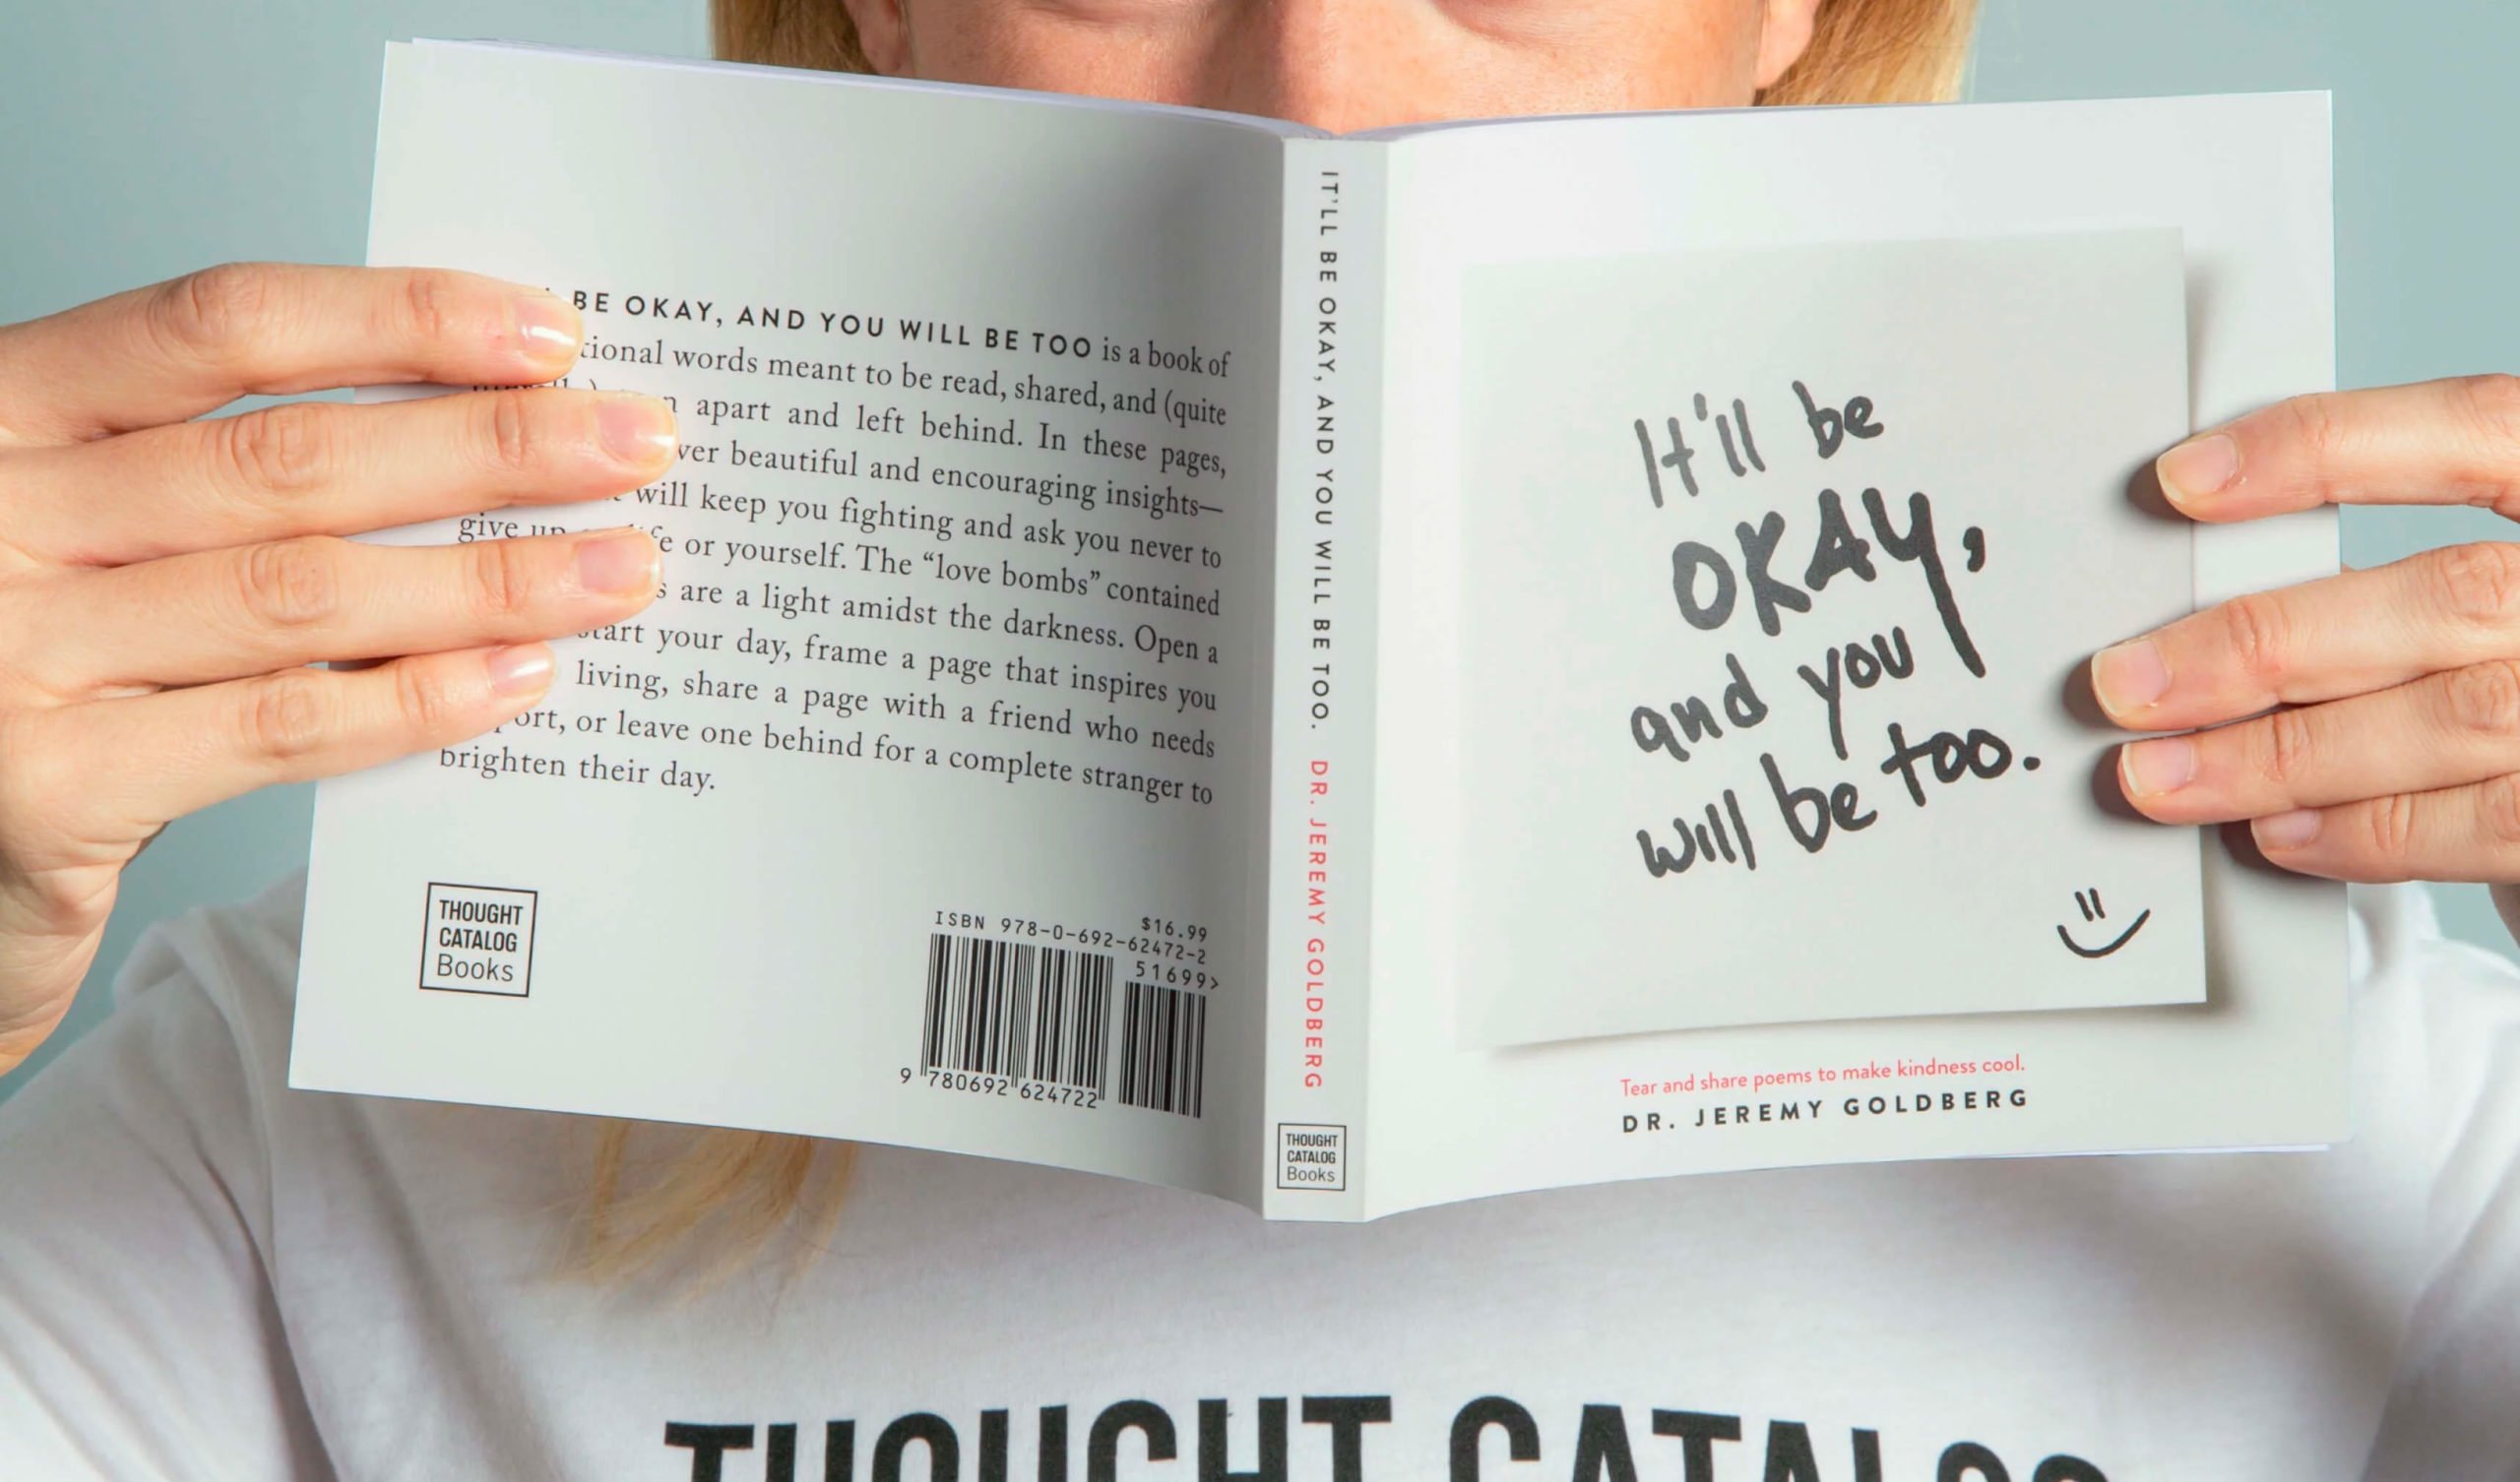 BE OKAY, AND YOU WILL BE TOO is a book of
words meant to be read, shared, and (quite
apart and left behind. In these pages,
beautiful and encouraging insights—
will keep you fighting and ask you never to
give or yourself. The “love bombs” contained
are a light amidst the darkness. Open a
start your day, frame a page that inspires you
living, share a page with a friend who needs
or leave one behind for a complete stranger to
brighten their day.
THOUGHT
CATALOG
Books
$16.99
ISBN 978-0-692-62472-2
51699>
9 780692 624722
IT'LL BE OKAY, AND YOU WILL BE TOO. DR. JEREMY GOLDBERG
THOUGHT
CATALOG
Books
It'll be
OKAY,
and you
will be too.
Tear and share poems to make kindness cool.
DR. JEREMY GOLDBERG
THOUGHT CATALOG